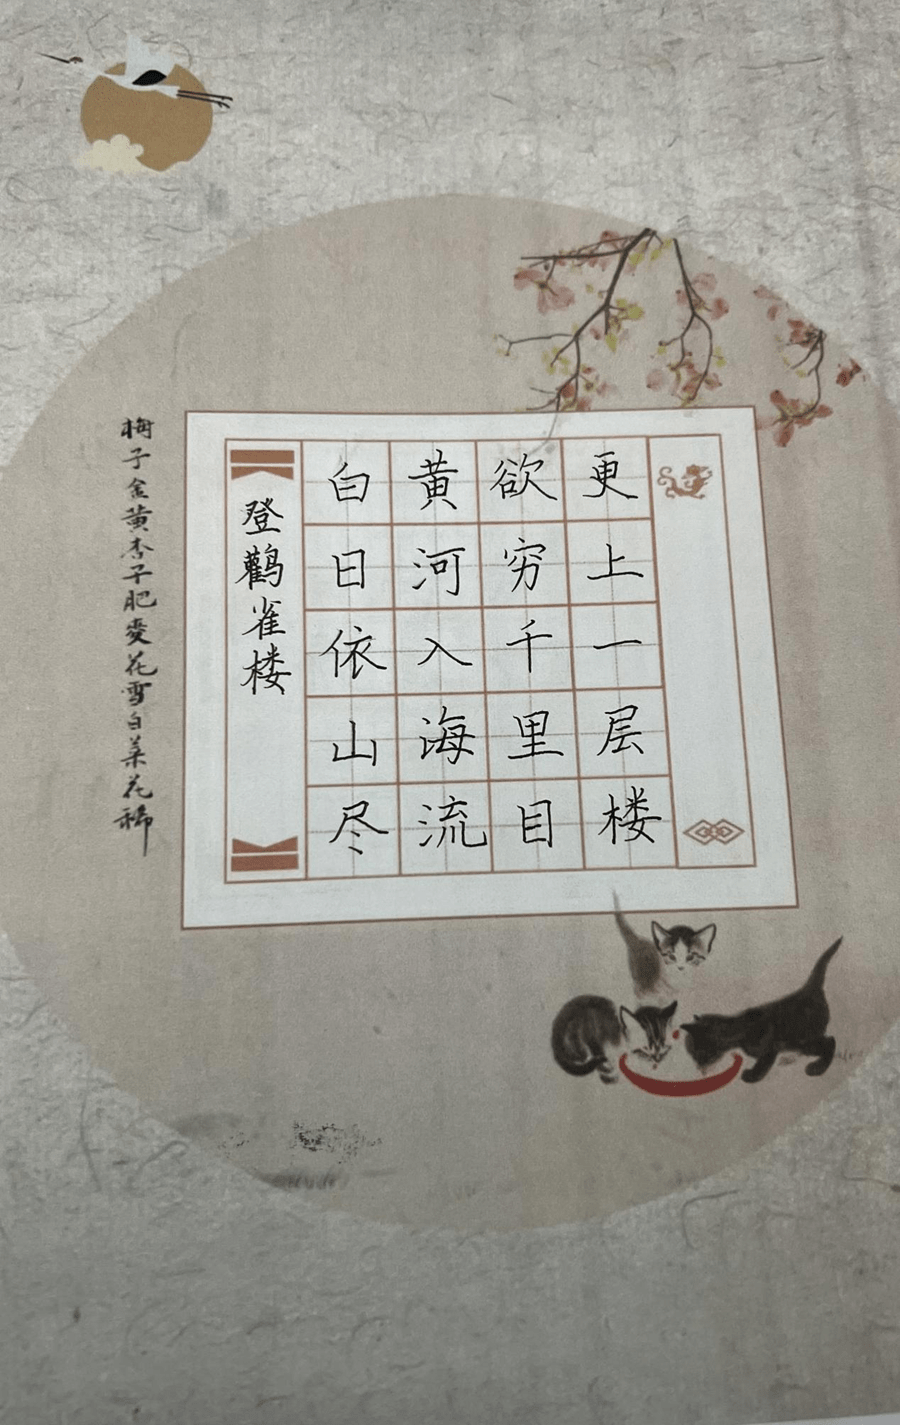 梅子金黄杏子肥麥花雪白菜花稀
登鹳雀楼
白日依山尽
黄河入海流
欲穷千里目
更上一层楼